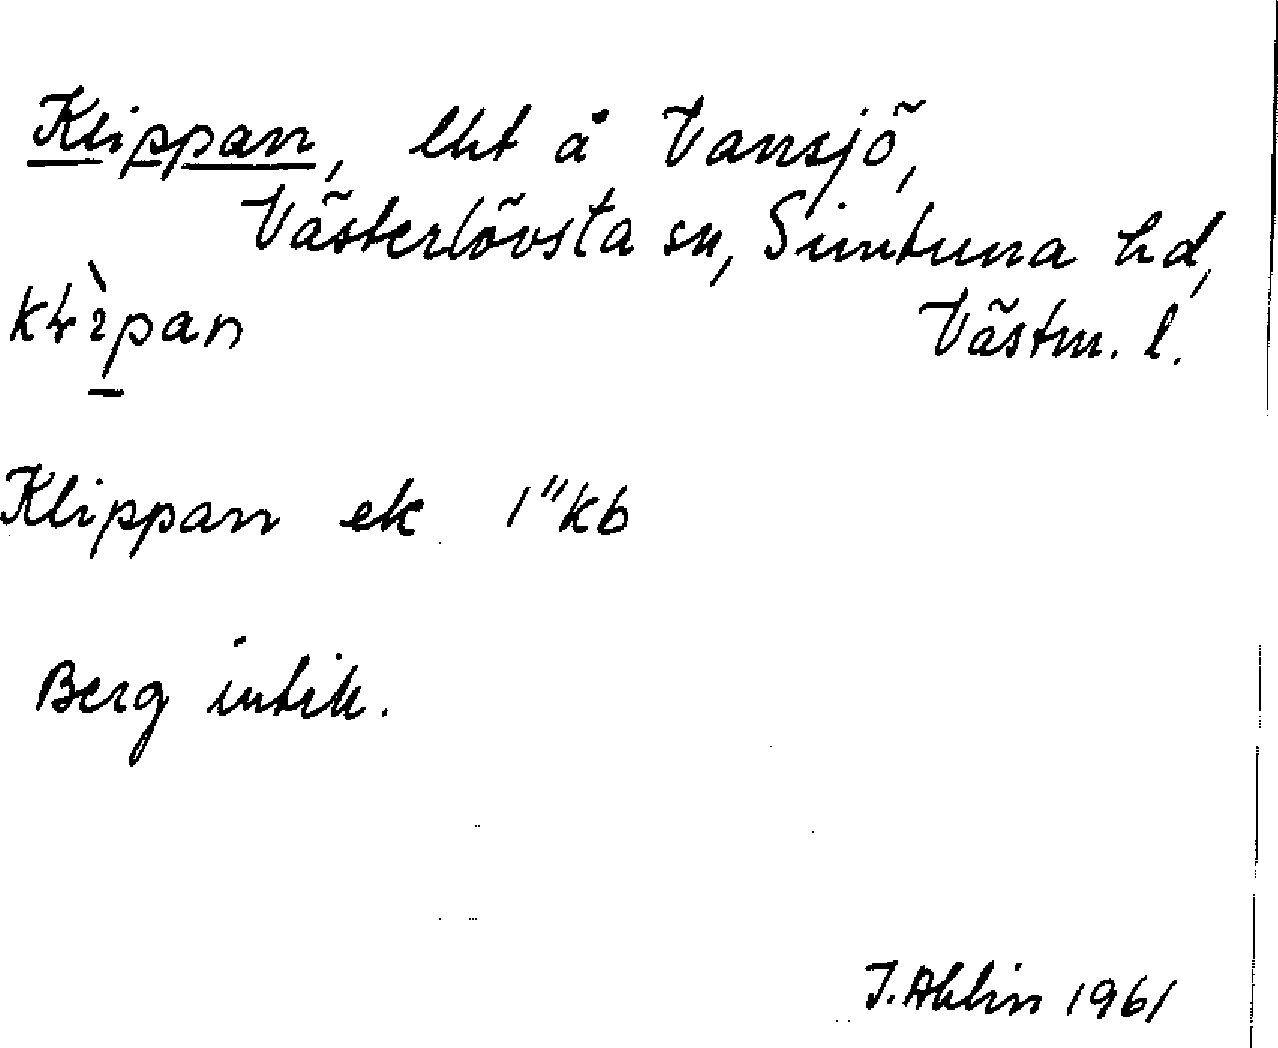 Klippan, lht å Vansjö,
Västerlövsta sn, Simtuna hd,
Västm. l.
Klippan ek 1"kb
Berg intik.
I. Ahlin 1961